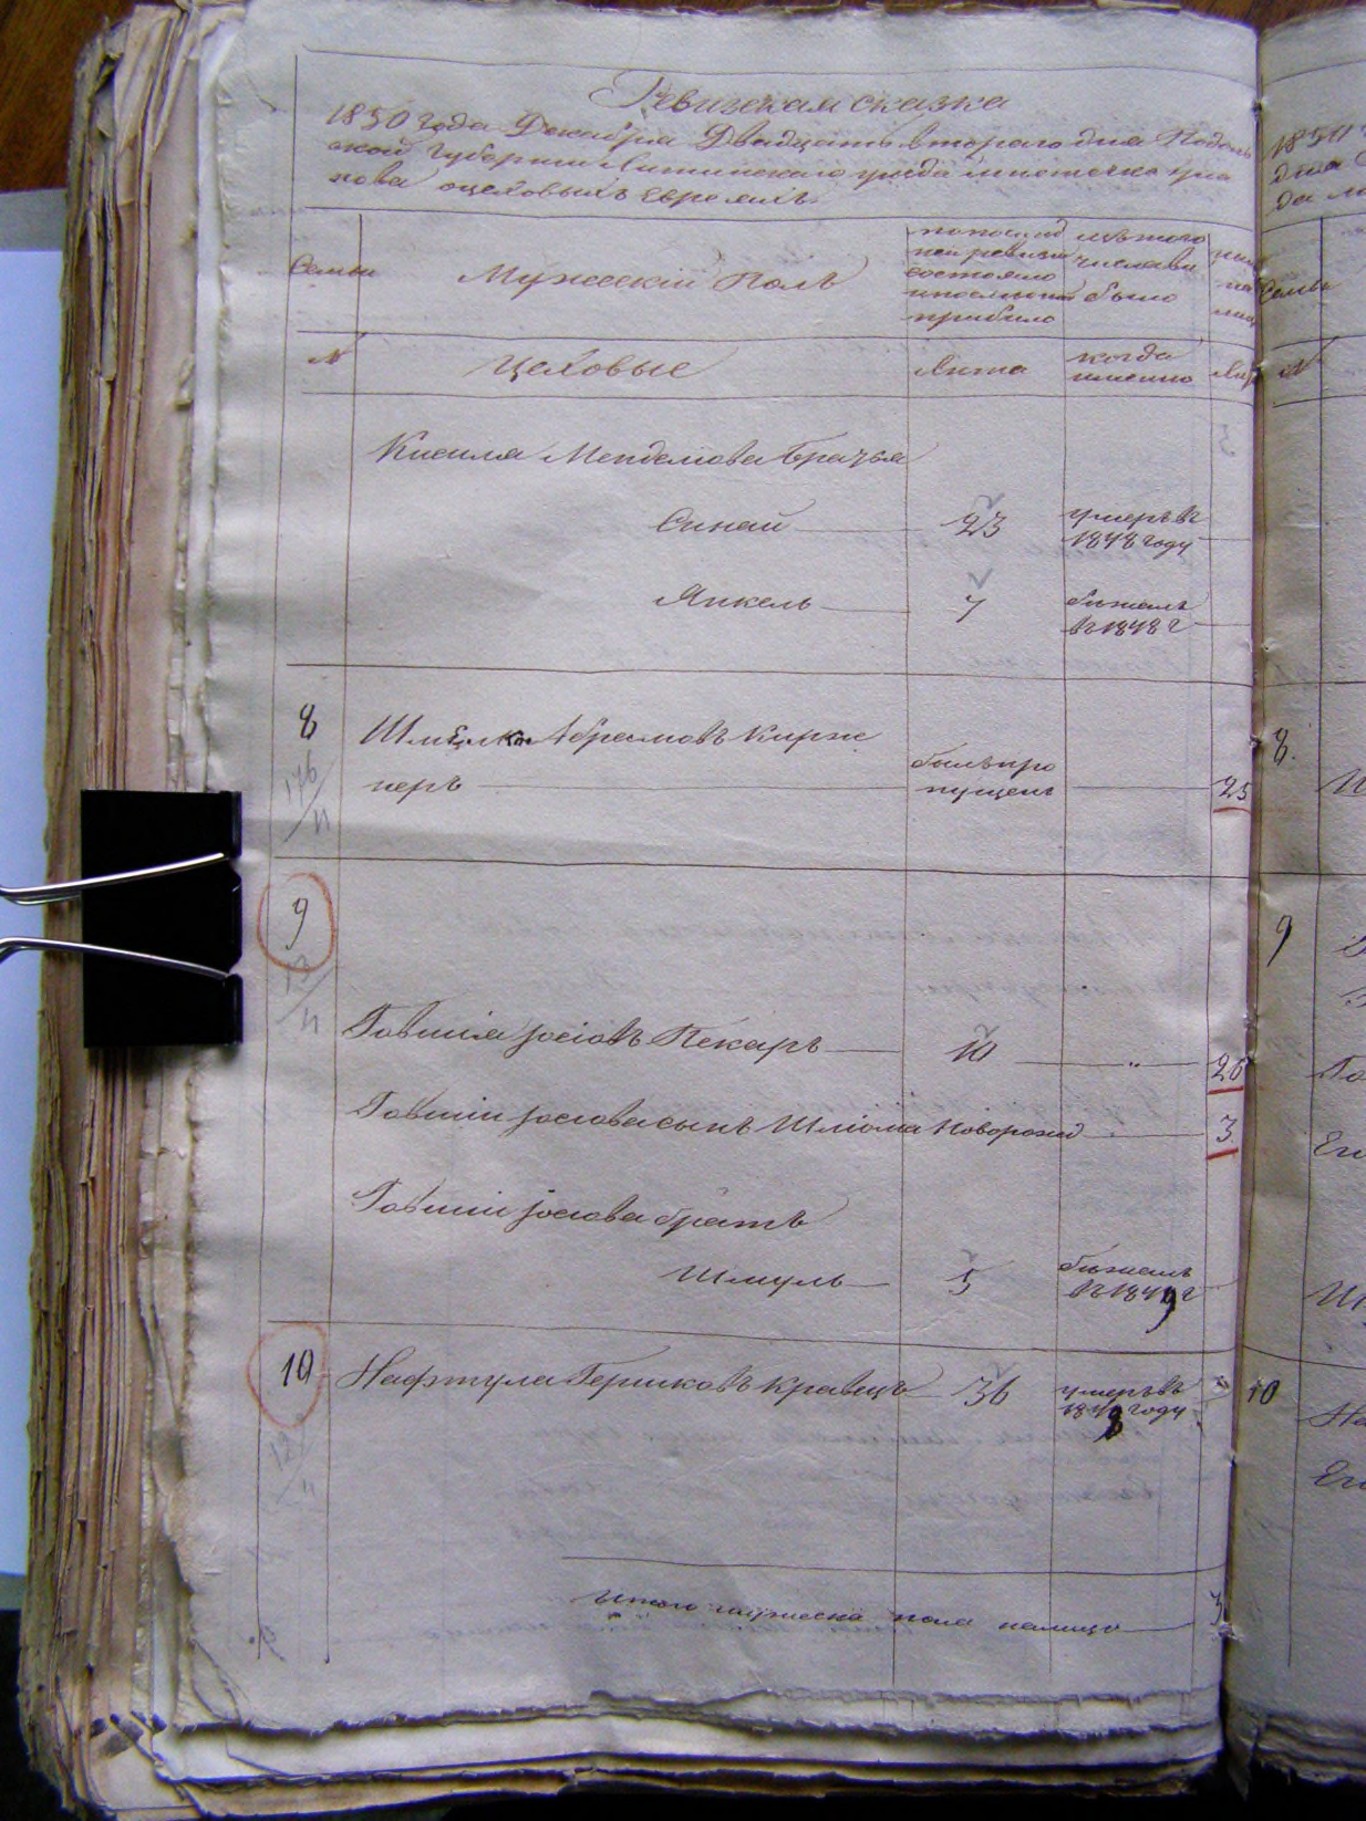 Ревизская сказка
1850 года Декабря Двадцать второго дня Подоль
ской Губернии Литинского уезда местечка Ула
нова о цеховых Евреяхъ.
Семьи
Мужеский Полъ
по послед
ней ревизии
состояло
и после того
прибыло
изъ того
числа вы
было
№
Цеховые
Лета
когда
именно
Киселя Менделова Братья
Синай 23 умеръ въ
1848 году
Янкель 7 бежалъ
въ 1848 г
8 Шмелко Абрамовъ Кирже
неръ былъ про
пущенъ 25
176/11
9
13/11
Говшия Іосіовъ Пекаръ 10 " 26
Говшіи Іосіова сынъ Шліома новорожд 3
Говшіи Іосіова братъ
Шмуль 5 бежалъ
въ 1849 г
10 Нафтула Гершковъ Кравецъ 36 умеръ въ
1849 году
12/11
Итого мужеска пола налицо 3